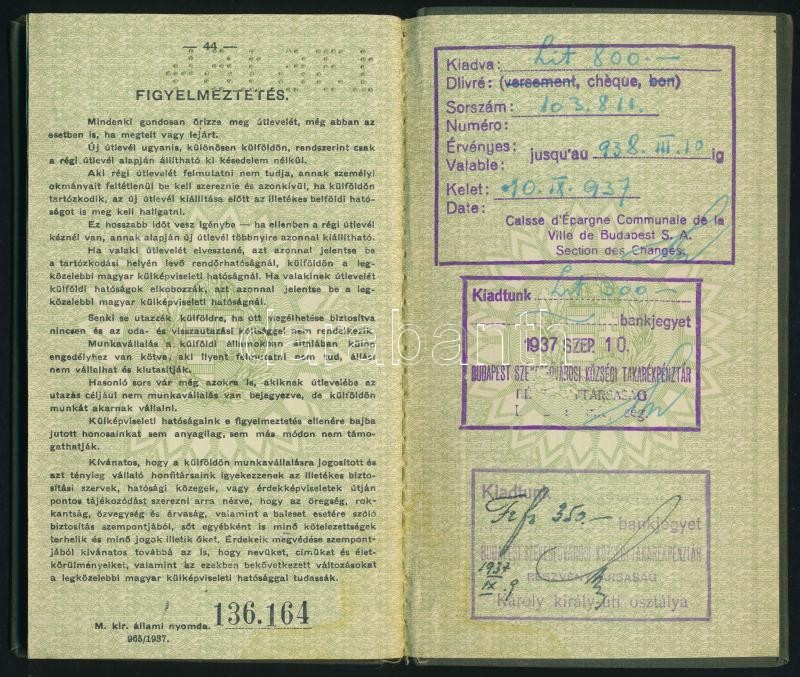 — 44 —
FIGYELMEZTETÉS.
Mindenki gondosan őrizze meg útlevelét, még abban az
esetben is, ha megtelt vagy lejárt.
Új útlevél ugyanis, különösen külföldön, rendszerint csak
a régi útlevél alapján állítható ki késedelem nélkül.
Aki régi útlevelét felmutatni nem tudja, annak személyi
okmányait feltétlenül be kell szereznie és azonkívül, ha külföldön
tartózkodik, az új útlevél kiállítása előtt az illetékes belföldi ható-
ságot is meg kell hallgatni.
Ez hosszabb időt vesz igénybe — ha ellenben a régi útlevél
kéznél van, annak alapján új útlevél többnyire azonnal kiállítható.
Ha valaki útlevelét elvesztené, azt azonnal jelentse be
a tartózkodási helyén levő rendőrhatóságnál, külföldön a leg-
közelebbi magyar külképviseleti hatóságnál. Ha valakinek útlevelét
külföldi hatóságok elkobozzák, azt azonnal jelentse be a leg-
közelebbi magyar külképviseleti hatóságnál.
Senki se utazzék külföldre, ha ott megélhetése biztosítva
nincsen és az oda- és visszautazási költséggel nem rendelkezik.
Munkavállalás a külföldi államokban általában külön
engedélyhez van kötve, aki ilyent felmutatni nem tud, állást
nem vállalhat és kiutasítják.
Hasonló sors vár még azokra is, akiknek útlevelébe az
utazás céljául nem munkavállalás van bejegyezve, de külföldön
munkát akarnak vállalni.
Külképviseleti hatóságaink e figyelmeztetés ellenére bajba
jutott honosainkat sem anyagilag, sem más módon nem támo-
gathatják.
Kívánatos, hogy a külföldön munkavállalásra jogosított és
azt tényleg vállaló honfitársaink igyekezzenek az illetékes bizto-
sítási szervek, hatósági közegek, vagy érdekképviseletek útján
pontos tájékozódást szerezni arra nézve, hogy az öregség, rok-
kantság, özvegység és árvaság, valamint a baleset esetére szóló
biztosítás szempontjából, sőt egyébként is minő kötelezettségek
terhelik és minő jogok illetik őket. Érdekeik megvédése szempont-
jából kívánatos továbbá az is, hogy nevüket, címüket és élet-
körülményeiket, valamint az ezekben bekövetkezett változásokat
a legközelebbi magyar külképviseleti hatósággal tudassák.
M. kir. állami nyomda. 136.164
965/1937.
Kiadva: Lit 800.—
Dlivré: (versement, chèque, bon)
Sorszám: 103.811.
Numéro:
Érvényes:
Valable: jusqu'au 938. III. 10 ig
Kelet: 10. IX. 937
Date:
Caisse d'Épargne Communale de la
Ville de Budapest S. A.
Section des Changes.
Kiadtunk Lit 300.—
bankjegyet
1937 SZEP. 10.
BUDAPEST SZÉKESFŐVÁROSI KÖZSÉGI TAKARÉKPÉNZTÁR
darabanth
Kiadtunk
Frfr 350.— bankjegyet
BUDAPEST SZÉKESFŐVÁROSI KÖZSÉGI TAKARÉKPÉNZTÁR
1937 RÉSZVÉNYTÁRSASÁG
IX. 9 Károly király-úti osztálya